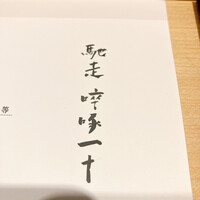 馳走 啐啄一十
等